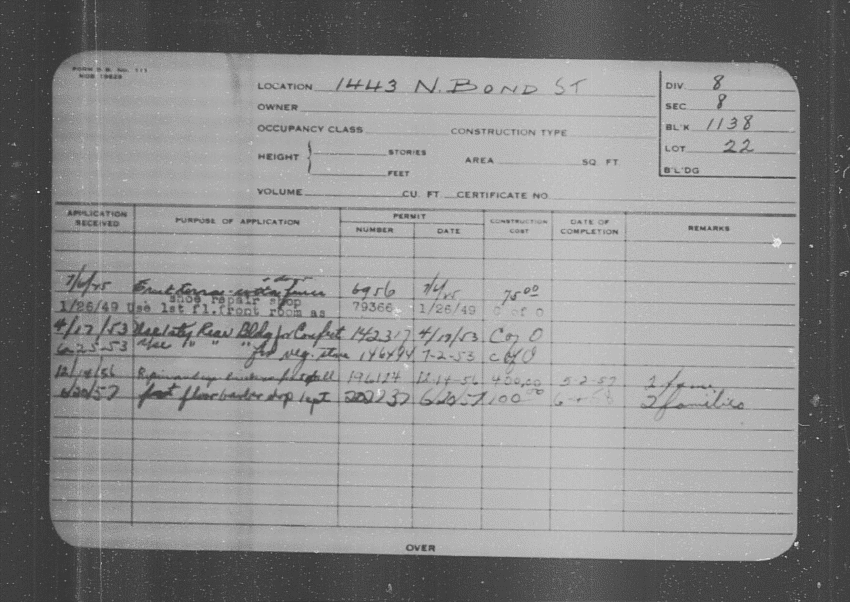 FORM S.B. No. 111
LOCATION 1443 N. BOND ST
DIV. 8
OWNER
SEC. 8
OCCUPANCY CLASS CONSTRUCTION TYPE
BL'K 1138
HEIGHT STORIES AREA SQ. FT
LOT 22
FEET
B'L'DG
VOLUME CU. FT. CERTIFICATE NO.
APPLICATION RECEIVED PURPOSE OF APPLICATION PERMIT CONSTRUCTION COST DATE OF COMPLETION REMARKS
NUMBER DATE
7/6/45 6956 7/6/45 75.00
shoe repair shop
1/26/49 Use 1st fl.front room as 79366 1/26/49 C of O
4/17/53 Rear Bldg for 142317 4/17/53 C of O
6-25-53 Use " " " for veg. store 146494 7-2-53 C of O
12/14/56 196124 12-14-56 400.00 5-2-57
6/20/57 floor barber shop 202232 6/20/57 100.00 2 families
OVER